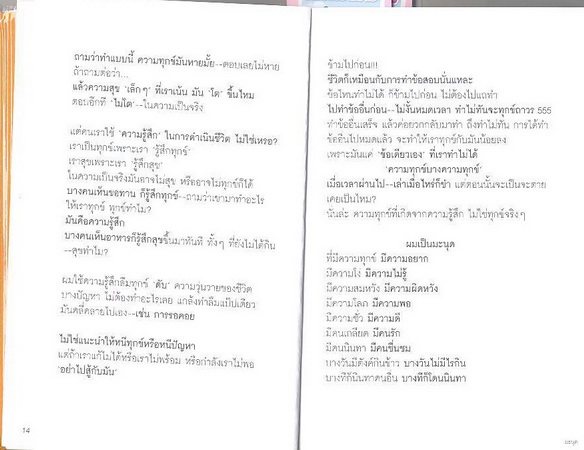 ถามว่าทำแบบนี้ ความทุกข์มันหายมั้ย--ตอบเลยไม่หาย
ถ้าถามต่อว่า...
แล้วความสุข 'เล็กๆ' ที่เราเน้น มัน 'โต' ขึ้นไหม
ตอบอีกที 'ไม่โต'--ในความเป็นจริง
แต่คนเราใช้ 'ความรู้สึก' ในการดำเนินชีวิต ไม่ใช่เหรอ?
เราเป็นทุกข์เพราะเรา 'รู้สึกทุกข์'
เราสุขเพราะเรา 'รู้สึกสุข'
ในความเป็นจริงมันอาจไม่สุข หรืออาจไม่ทุกข์ก็ได้
บางคนเห็นขอทาน ก็รู้สึกทุกข์--ถามว่าเขามาทำอะไร
ให้เราทุกข์ ทุกข์ทำไม?
มันคือความรู้สึก
บางคนเห็นอาหารก็รู้สึกสุขขึ้นมาทันที ทั้งๆ ที่ยังไม่ได้กิน
--สุขทำไม?
ผมใช้ความรู้สึกลืมทุกข์ 'ดับ' ความวุ่นวายของชีวิต
บางปัญหา ไม่ต้องทำอะไรเลย แกล้งทำลืมแป๊ปเดียว
มันคลี่คลายไปเอง--เช่น การรอคอย
ไม่ใช่แนะนำให้หนีทุกข์หรือหนีปัญหา
แต่ถ้าเราแก้ไม่ได้หรือเราไม่พร้อม หรือกำลังเราไม่พอ
'อย่าไปสู้กับมัน'
14
ข้ามไปก่อน!!!
ชีวิตก็เหมือนกับการทำข้อสอบนั่นแหละ
ข้อไหนทำไม่ได้ ก็ข้ามไปก่อน ไม่ต้องไปแถทำ
ไปทำข้ออื่นก่อน--ไม่งั้นหมดเวลา ทำไม่ทันจะทุกข์ถาวร 555
ทำข้ออื่นเสร็จ แล้วค่อยวกกลับมาทำ ถึงทำไม่ทัน การได้ทำ
ข้ออื่นไปหมดแล้ว จะทำให้เราทุกข์กับมันน้อยลง
เพราะมันแค่ 'ข้อเดียวเอง' ที่เราทำไม่ได้
'ความทุกข์บางความทุกข์'
เมื่อเวลาผ่านไป--เล่าเมื่อไหร่ก็ขำ แต่ตอนนั้นจะเป็นจะตาย
เคยเป็นไหม?
นั่นล่ะ ความทุกข์ที่เกิดจากความรู้สึก ไม่ใช่ทุกข์จริงๆ
ผมเป็นมะนุด
ที่มีความทุกข์ มีความอยาก
มีความโง่ มีความไม่รู้
มีความสมหวัง มีความผิดหวัง
มีความโลภ มีความพอ
มีความชั่ว มีความดี
มีคนเกลียด มีคนรัก
มีคนนินทา มีคนชื่นชม
บางวันมีตังค์กินข้าว บางวันไม่มีไรกิน
บางทีก็นินทาคนอื่น บางทีก็โดนนินทา